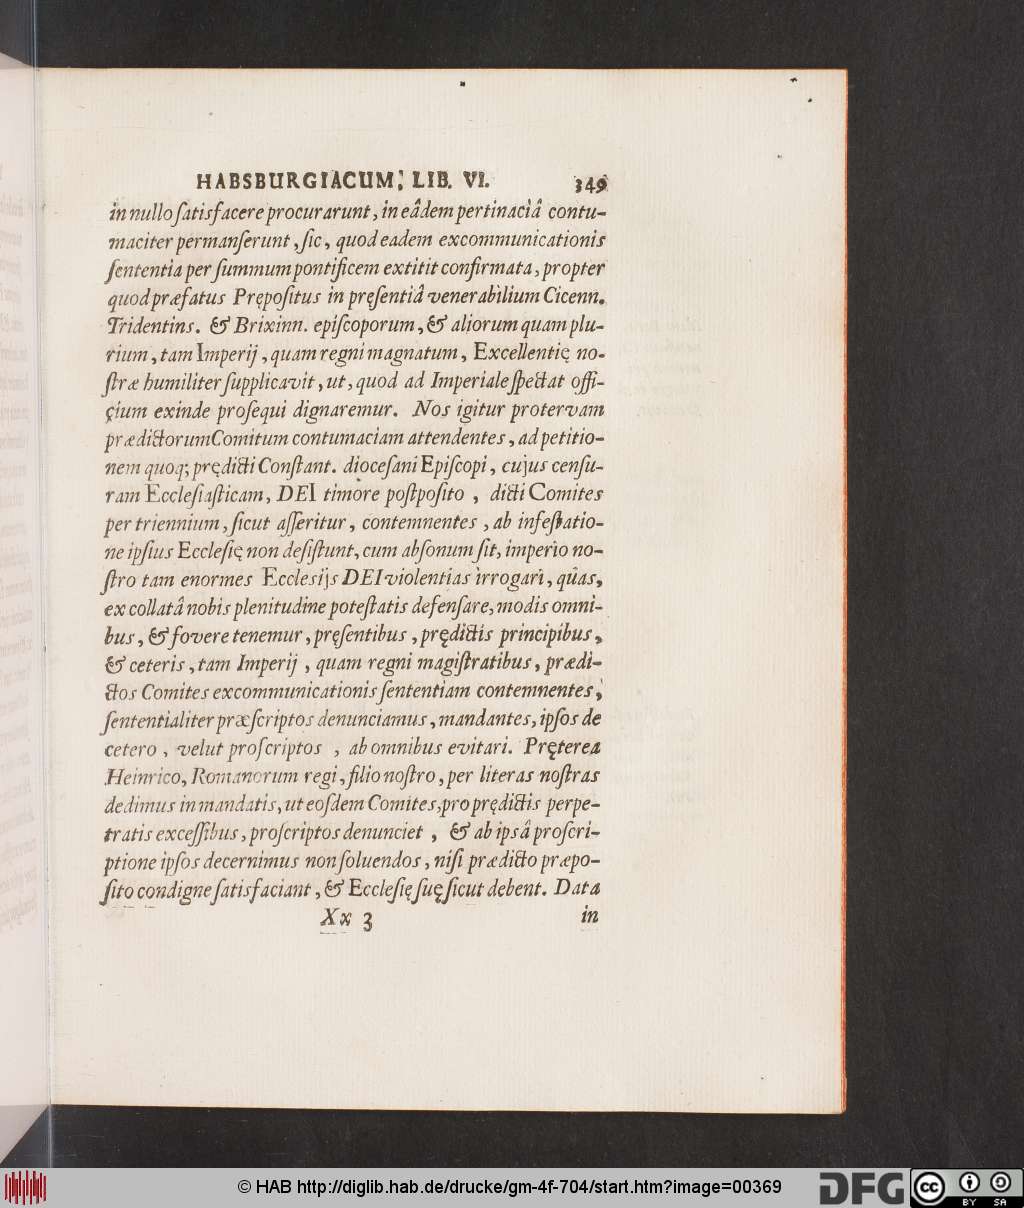 HABSBURGIACUM, LIB. VI. 349
in nullo ſatisfacere procurarunt, in eâdem pertinaciâ contu-
maciter permanſerunt, ſic, quod eadem excommunicationis
ſententia per ſummum pontificem extitit confirmata, propter
quod præfatus Prępoſitus in pręſentiâ venerabilium Cicenn.
Tridentins. & Brixinn. epiſcoporum, & aliorum quam plu-
rium, tam Imperij, quam regni magnatum, Excellentię no-
ſtræ humiliter ſupplicavit, ut, quod ad Imperiale ſpectat offi-
çium exinde proſequi dignaremur. Nos igitur protervam
prædictorum Comitum contumaciam attendentes, ad petitio-
nem quoq; prędicti Conſtant. dioceſani Epiſcopi, cujus cenſu-
ram Eccleſiaſticam, DEI timore poſtpoſito, dicti Comites
per triennium, ſicut aſſeritur, contemnentes, ab infeſtatio-
ne ipſius Eccleſię non deſiſtunt, cum abſonum ſit, imperio no-
ſtro tam enormes Ecclesijs DEI violentias irrogari, quas,
ex collatâ nobis plenitudine poteſtatis defenſare, modis omni-
bus, & fovere tenemur, pręſentibus, prędictis principibus,
& ceteris, tam Imperij, quam regni magiſtratibus, prædi-
ctos Comites excommunicationis ſententiam contemnentes,
ſententialiter præſcriptos denunciamus, mandantes, ipſos de
cetero, velut proſcriptos, ab omnibus evitari. Pręterea
Heinrico, Romanorum regi, filio noſtro, per literas noſtras
dedimus in mandatis, ut eoſdem Comites, pro prędictis perpe-
tratis exceſſibus, proſcriptos denunciet, & ab ipsâ proſcri-
ptione ipſos decernimus non ſoluendos, niſi prædicto præpo-
ſito condigne ſatisfaciant, & Eccleſię ſuę ſicut debent. Data
Xx 3 in
© HAB http://diglib.hab.de/drucke/gm-4f-704/start.htm?image=00369
DFG
cc BY SA